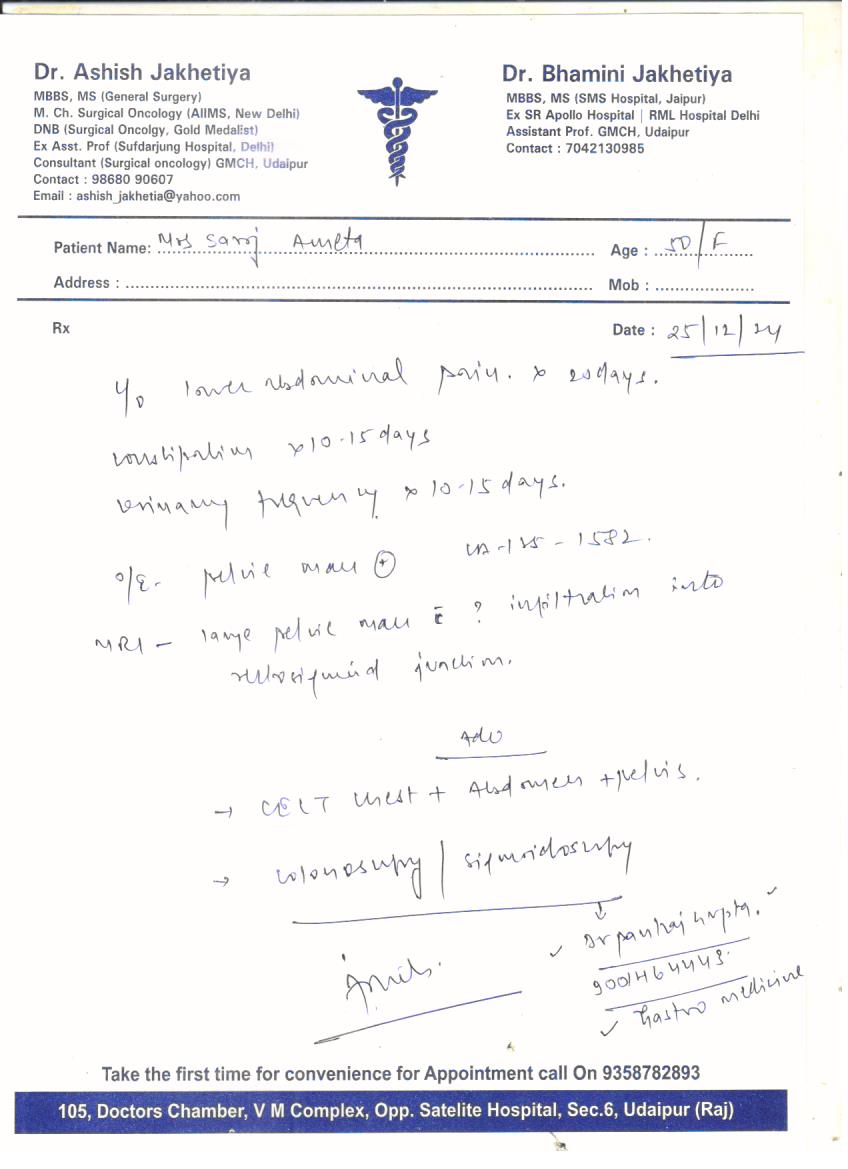 Dr. Ashish Jakhetiya
MBBS, MS (General Surgery)
M. Ch. Surgical Oncology (AIIMS, New Delhi)
DNB (Surgical Oncolgy, Gold Medalist)
Ex Asst. Prof (Sufdarjung Hospital, Delhi)
Consultant (Surgical oncology) GMCH, Udaipur
Contact : 98680 90607
Email : ashish_jakhetia@yahoo.com
Dr. Bhamini Jakhetiya
MBBS, MS (SMS Hospital, Jaipur)
Ex SR Apollo Hospital | RML Hospital Delhi
Assistant Prof. GMCH, Udaipur
Contact : 7042130985
Patient Name: Mrs Saroj Ameta
Age : 50/F
Address :
Mob :
Rx
Date : 25/12/24
lower abdominal pain. x 20 days.
constipation x 10-15 days
urinary frequency x 10-15 days.
O/E- pelvic mass + CA-125 - 1582.
MRI - large pelvic mass c ? infiltration into
rectosigmoid junction.
Adv
→ CECT chest + Abdomen + pelvis.
→ colonoscopy / sigmoidoscopy
Dr pankaj Gupta.
9001464443
Gastro medicine
Take the first time for convenience for Appointment call On 9358782893
105, Doctors Chamber, V M Complex, Opp. Satelite Hospital, Sec.6, Udaipur (Raj)